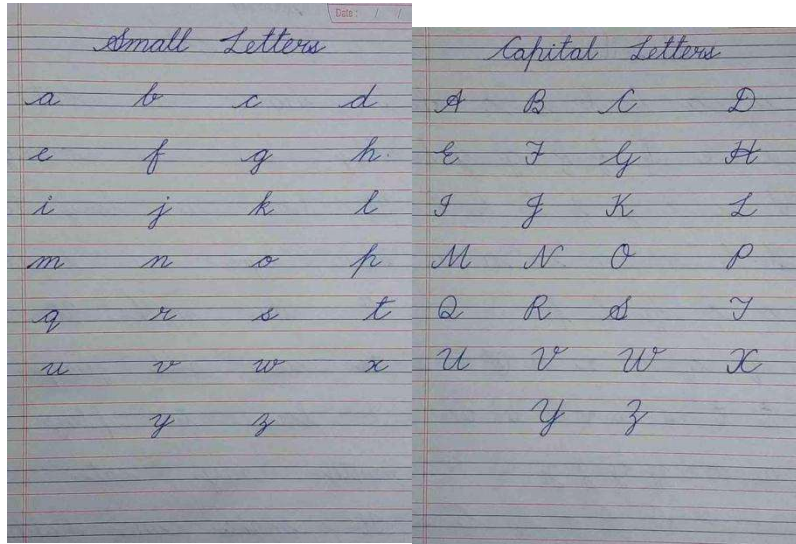 Date : / /
Small Letters
a b c d
e f g h
i j k l
m n o p
q r s t
u v w x
y z
Capital Letters
A B C D
E F G H
I J K L
M N O P
Q R S T
U V W X
Y Z